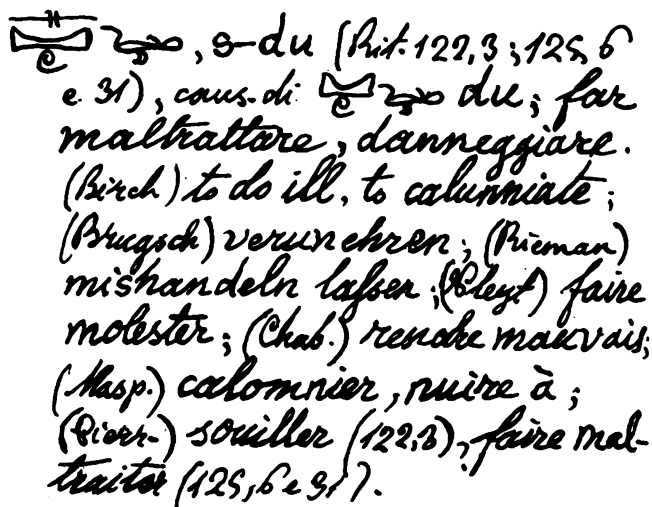 , s-du (Rit. 122,3; 125,6
e 31), caus. di du; far
maltrattare, danneggiare.
(Birch) to do ill, to calunniate;
(Brugsch) verunehren; (Rieman)
mishandeln lassen; (Pleyt) faire
molester; (Chab.) rendre mauvais;
(Masp.) calomnier, nuire à;
(Pierr.) souiller (122,3), faire mal-
traiter (125,6 e 31).